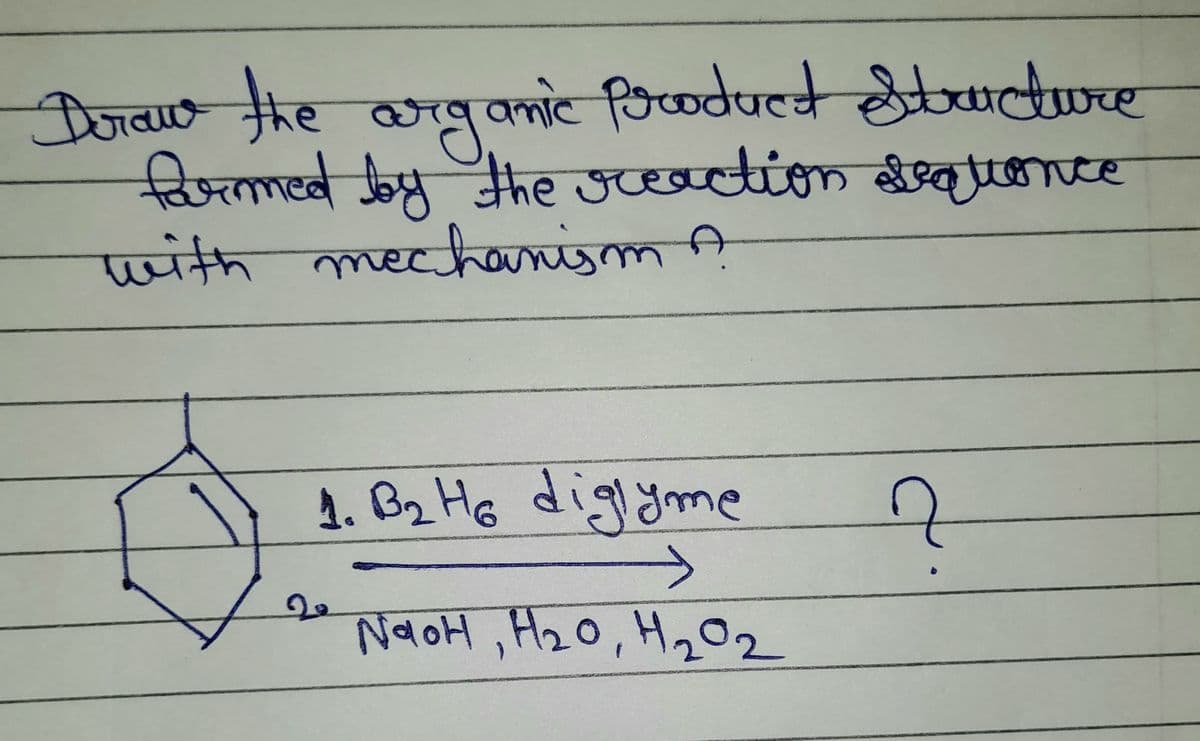 Draw the organic Product Structure
formed by the reaction sequence
with mechanism ?
1. B2 H6 diglyme
?
2.
NaOH , H2O, H2O2